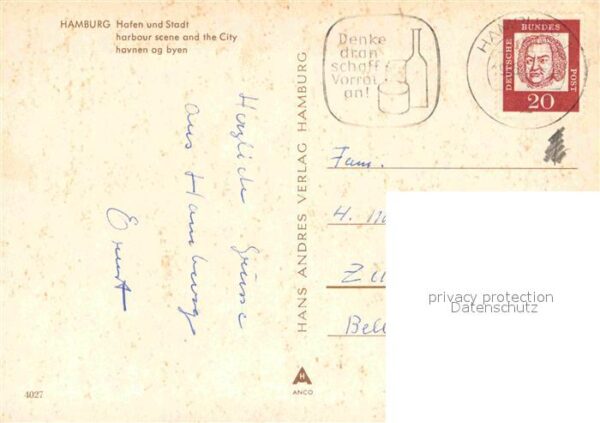 HAMBURG Hafen und Stadt
harbour scene and the City
havnen og byen
Denke
dran
schaff
Vorrat
an!
DEUTSCHE BUNDES POST
20
HANS ANDRES VERLAG HAMBURG
Herzliche Grüsse
aus Hamburg.
Ernst
Fam.
H.
privacy protection
Datenschutz
H
ANCO
4027